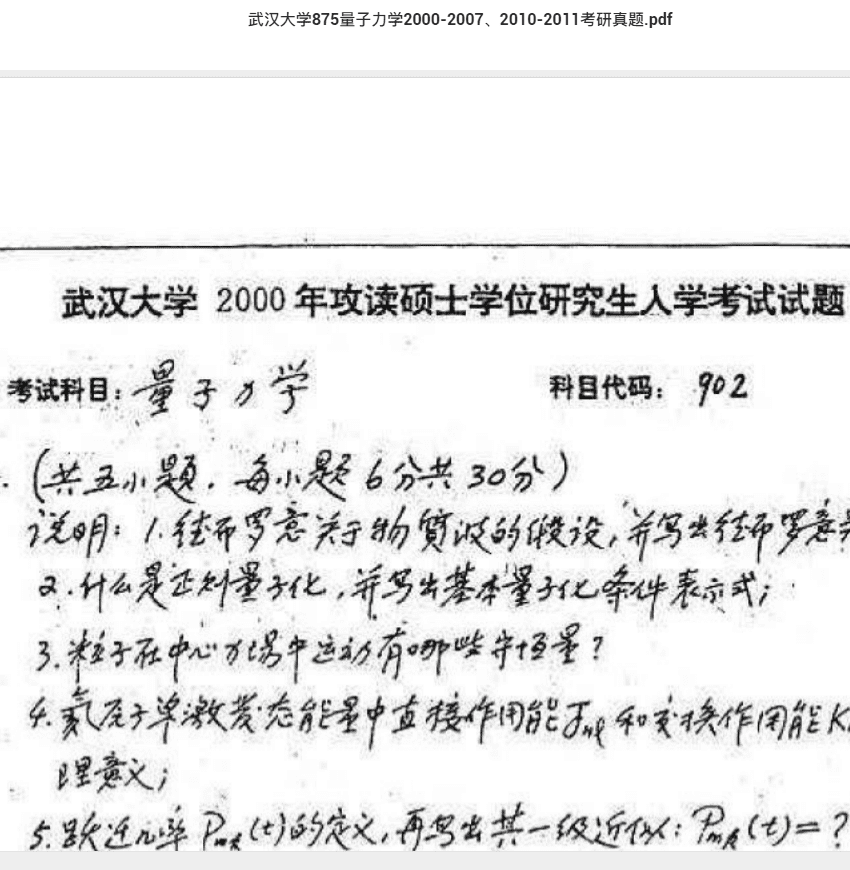 武汉大学875量子力学2000-2007、2010-2011考研真题.pdf
武汉大学 2000 年攻读硕士学位研究生入学考试试题
考试科目:量子力学 科目代码: 902
(共五小题,每小题6分共30分)
说明: 1.德布罗意关于物质波的假设,并写出德布罗意关
2.什么是正则量子化,并写出基本量子化条件表示式;
3.粒子在中心力场中运动有哪些守恒量?
4.氦原子单激发态能量中直接作用能Jnl和交换作用能K
理意义;
5.跃迁几率Pmk(t)的定义,再写出其一级近似: Pmk(t)=?